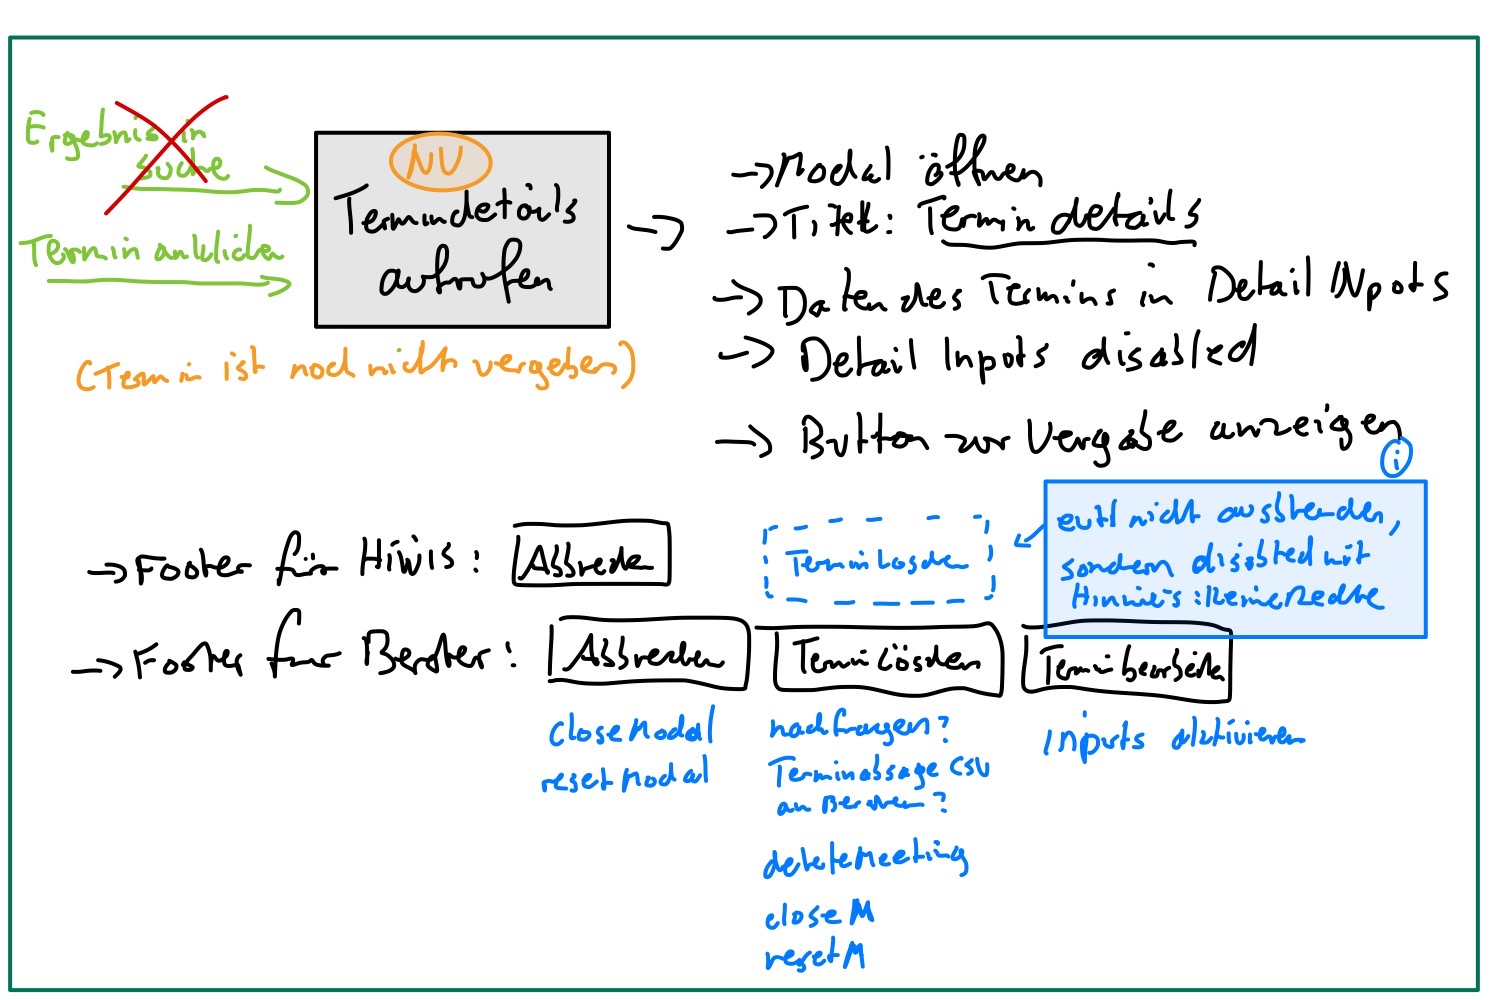 Ergebnis in
suche
Termin anklicken
NV
Termindetails
aufrufen
(Termin ist noch nicht vergeben)
→ Modal öffnen
→ Titel: Termin details
→ Daten des Termins in Detail INputs
→ Detail Inputs disabled
→ Button zur Vergabe anzeigen
i
evtl nicht ausblenden,
sondern disabled mit
Hinweis: Keine Rechte
→ Footer für Hiwis: Abbrechen
Termin Löschen
→ Footer für Berater: Abbrechen Termin Löschen Termin bearbeiten
closeModal
resetModal
nachfragen?
Terminabsage CSV
an Berater?
deleteMeeting
closeM
resetM
Inputs aktivieren